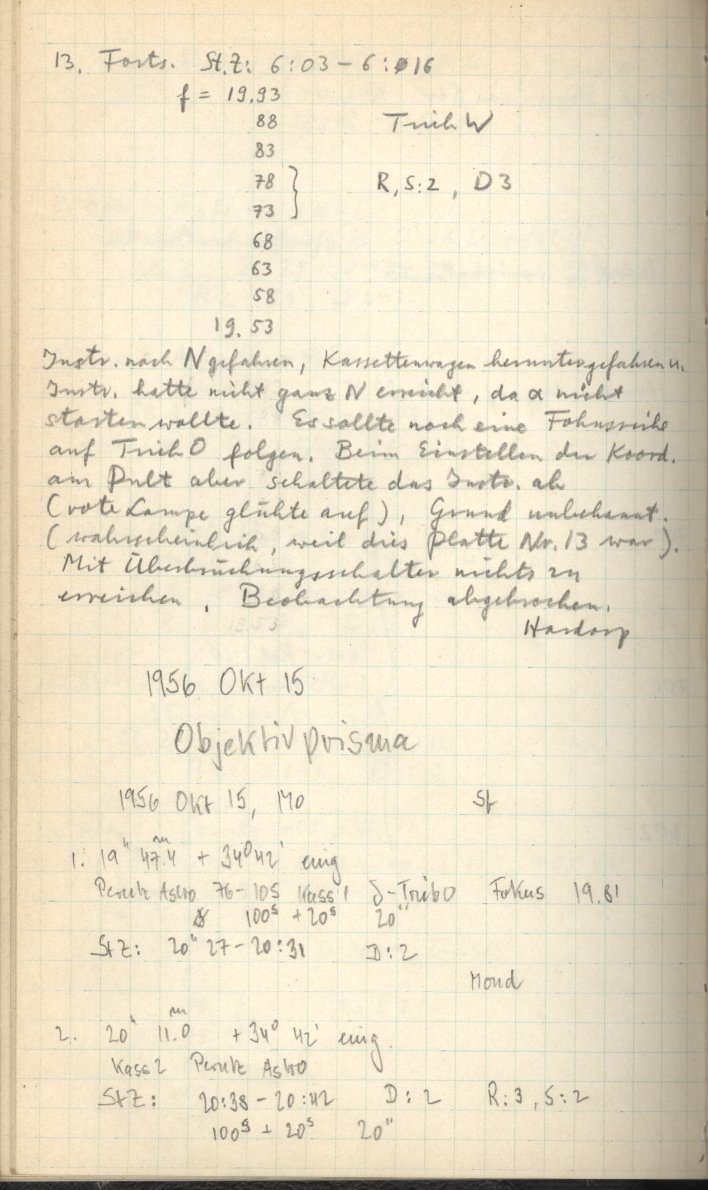 13. Forts. St.Z: 6:03 – 6:16
f = 19.93
88 Trich W
83
78 } R, S:2, D3
73
68
63
58
19.53
Instr. nach N gefahren, Kassettenwagen heruntergefahren u.
Instr. hatte nicht ganz N erreicht, da α nicht
starten wollte. Es sollte noch eine Fokusreihe
auf Trich O folgen. Beim Einstellen der Koord.
am Pult aber schaltete das Instr. ab
(rote Lampe glühte auf), Grund unbekannt.
(wahrscheinlich, weil dies Platte Nr. 13 war).
Mit Überbrückungsschalter nichts zu
erreichen. Beobachtung abgebrochen.
Hardorp
1956 Okt 15
Objektivprisma
1956 Okt 15, Mo St
1. 19h 47m.4 + 34° 42' eing
Perutz Astro 76-105 Kass 1 Fokus 19.81
100s + 20s 20"
StZ: 20h 27 – 20:31 D:2
Mond
2. 20h 11m.0 + 34° 42' eing.
Kass 2 Perutz Astro
StZ: 20:38 – 20:42 D:2 R:3, S:2
100s + 20s 20"